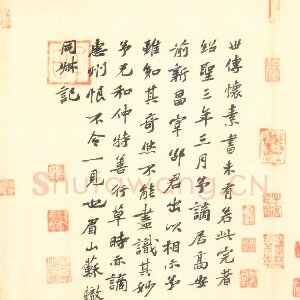 世傳懷素書未有若此完者
紹聖三年三月予謫居高安
前新昌宰邵君出以相示予
雖知其奇然不能盡識其妙
予兄和仲特善行草時亦謫
惠州恨不令一見也眉山蘇轍
同叔記
Shufawang.CN